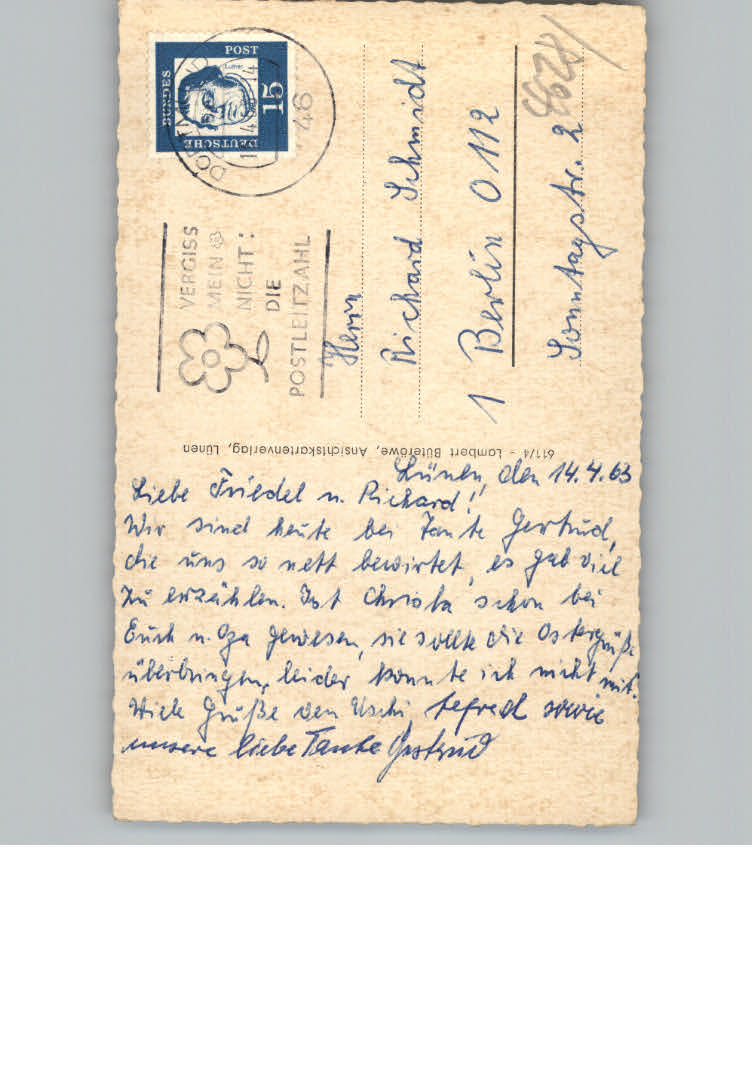 DEUTSCHE
BUNDES
POST
15
Luther
46
VERGISS
MEIN
NICHT:
DIE
POSTLEITZAHL
4628/
Herrn
Richard Schmidt
1 Berlin O 112
Sonntagstr. 2
611/4 - Lambert Büteröwe, Ansichtskartenverlag, Lünen
Lünen, den 14.4.63
Liebe Friedel u. Richard!
Wir sind heute bei Tante Gertrud,
die uns so nett bewirtet, es gab viel
zu erzählen. Ist Christa schon bei
Euch u. Opa gewesen, sie sollte die Ostergrüße
überbringen, leider konnte ich nicht mit.
Viele Grüße von Uschi, sowie
unsere liebe Tante Gertrud